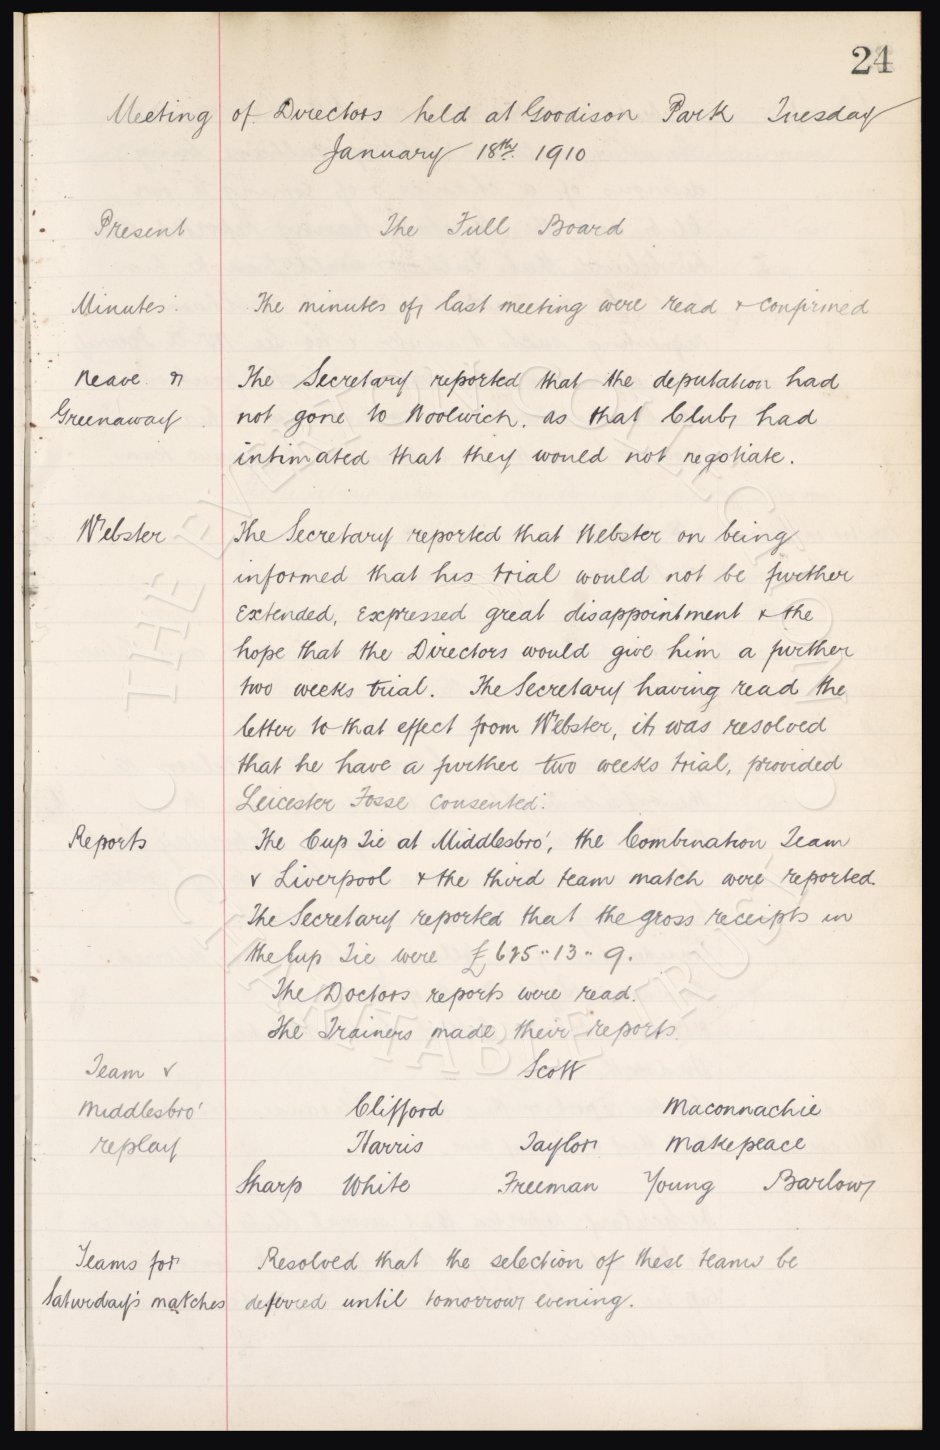 24
Meeting of Directors held at Goodison Park Tuesday
January 18th. 1910
Present The Full Board
Minutes. The minutes of last meeting were read & confirmed
Neave & The Secretary reported that the deputation had
Greenaway not gone to Woolwich, as that Club had
intimated that they would not negotiate.
Webster The Secretary reported that Webster on being
informed that his trial would not be further
extended, expressed great disappointment & the
hope that the Directors would give him a further
two weeks trial. The Secretary having read the
letter to that effect from Webster, it was resolved
that he have a further two weeks trial, provided
Leicester Fosse consented.
Reports The Cup Tie at Middlesbro', the Combination Team
v Liverpool & the third team match were reported.
The Secretary reported that the gross receipts in
the Cup Tie were £ 13 " 9.
The Doctors reports were read.
The Trainers made their reports.
Team v Scott
Middlesbro' Clifford Maconnachie
replay Harris Taylor Makepeace
Sharp White Freeman Young Barlow
Teams for Resolved that the selection of these teams be
Saturday's matches deferred until tomorrow evening.
THE EVERTON COLLECTION
CHARITABLE TRUST